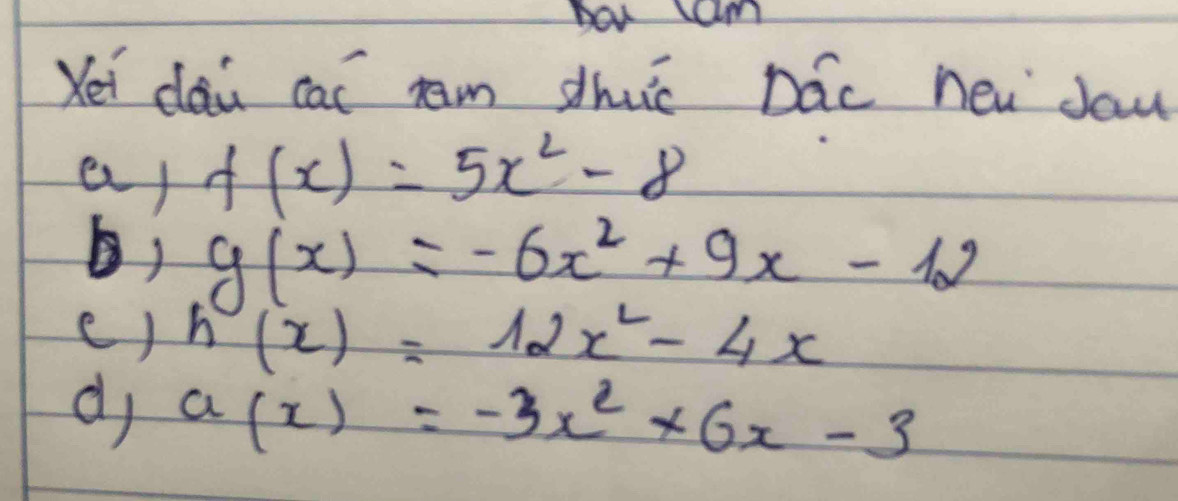 Bài làm
Xét dấu các tam thức bậc hai sau
a) f(x) = 5x² - 8
b) g(x) = -6x² + 9x - 12
c) h(x) = 12x² - 4x
d) a(x) = -3x² + 6x - 3